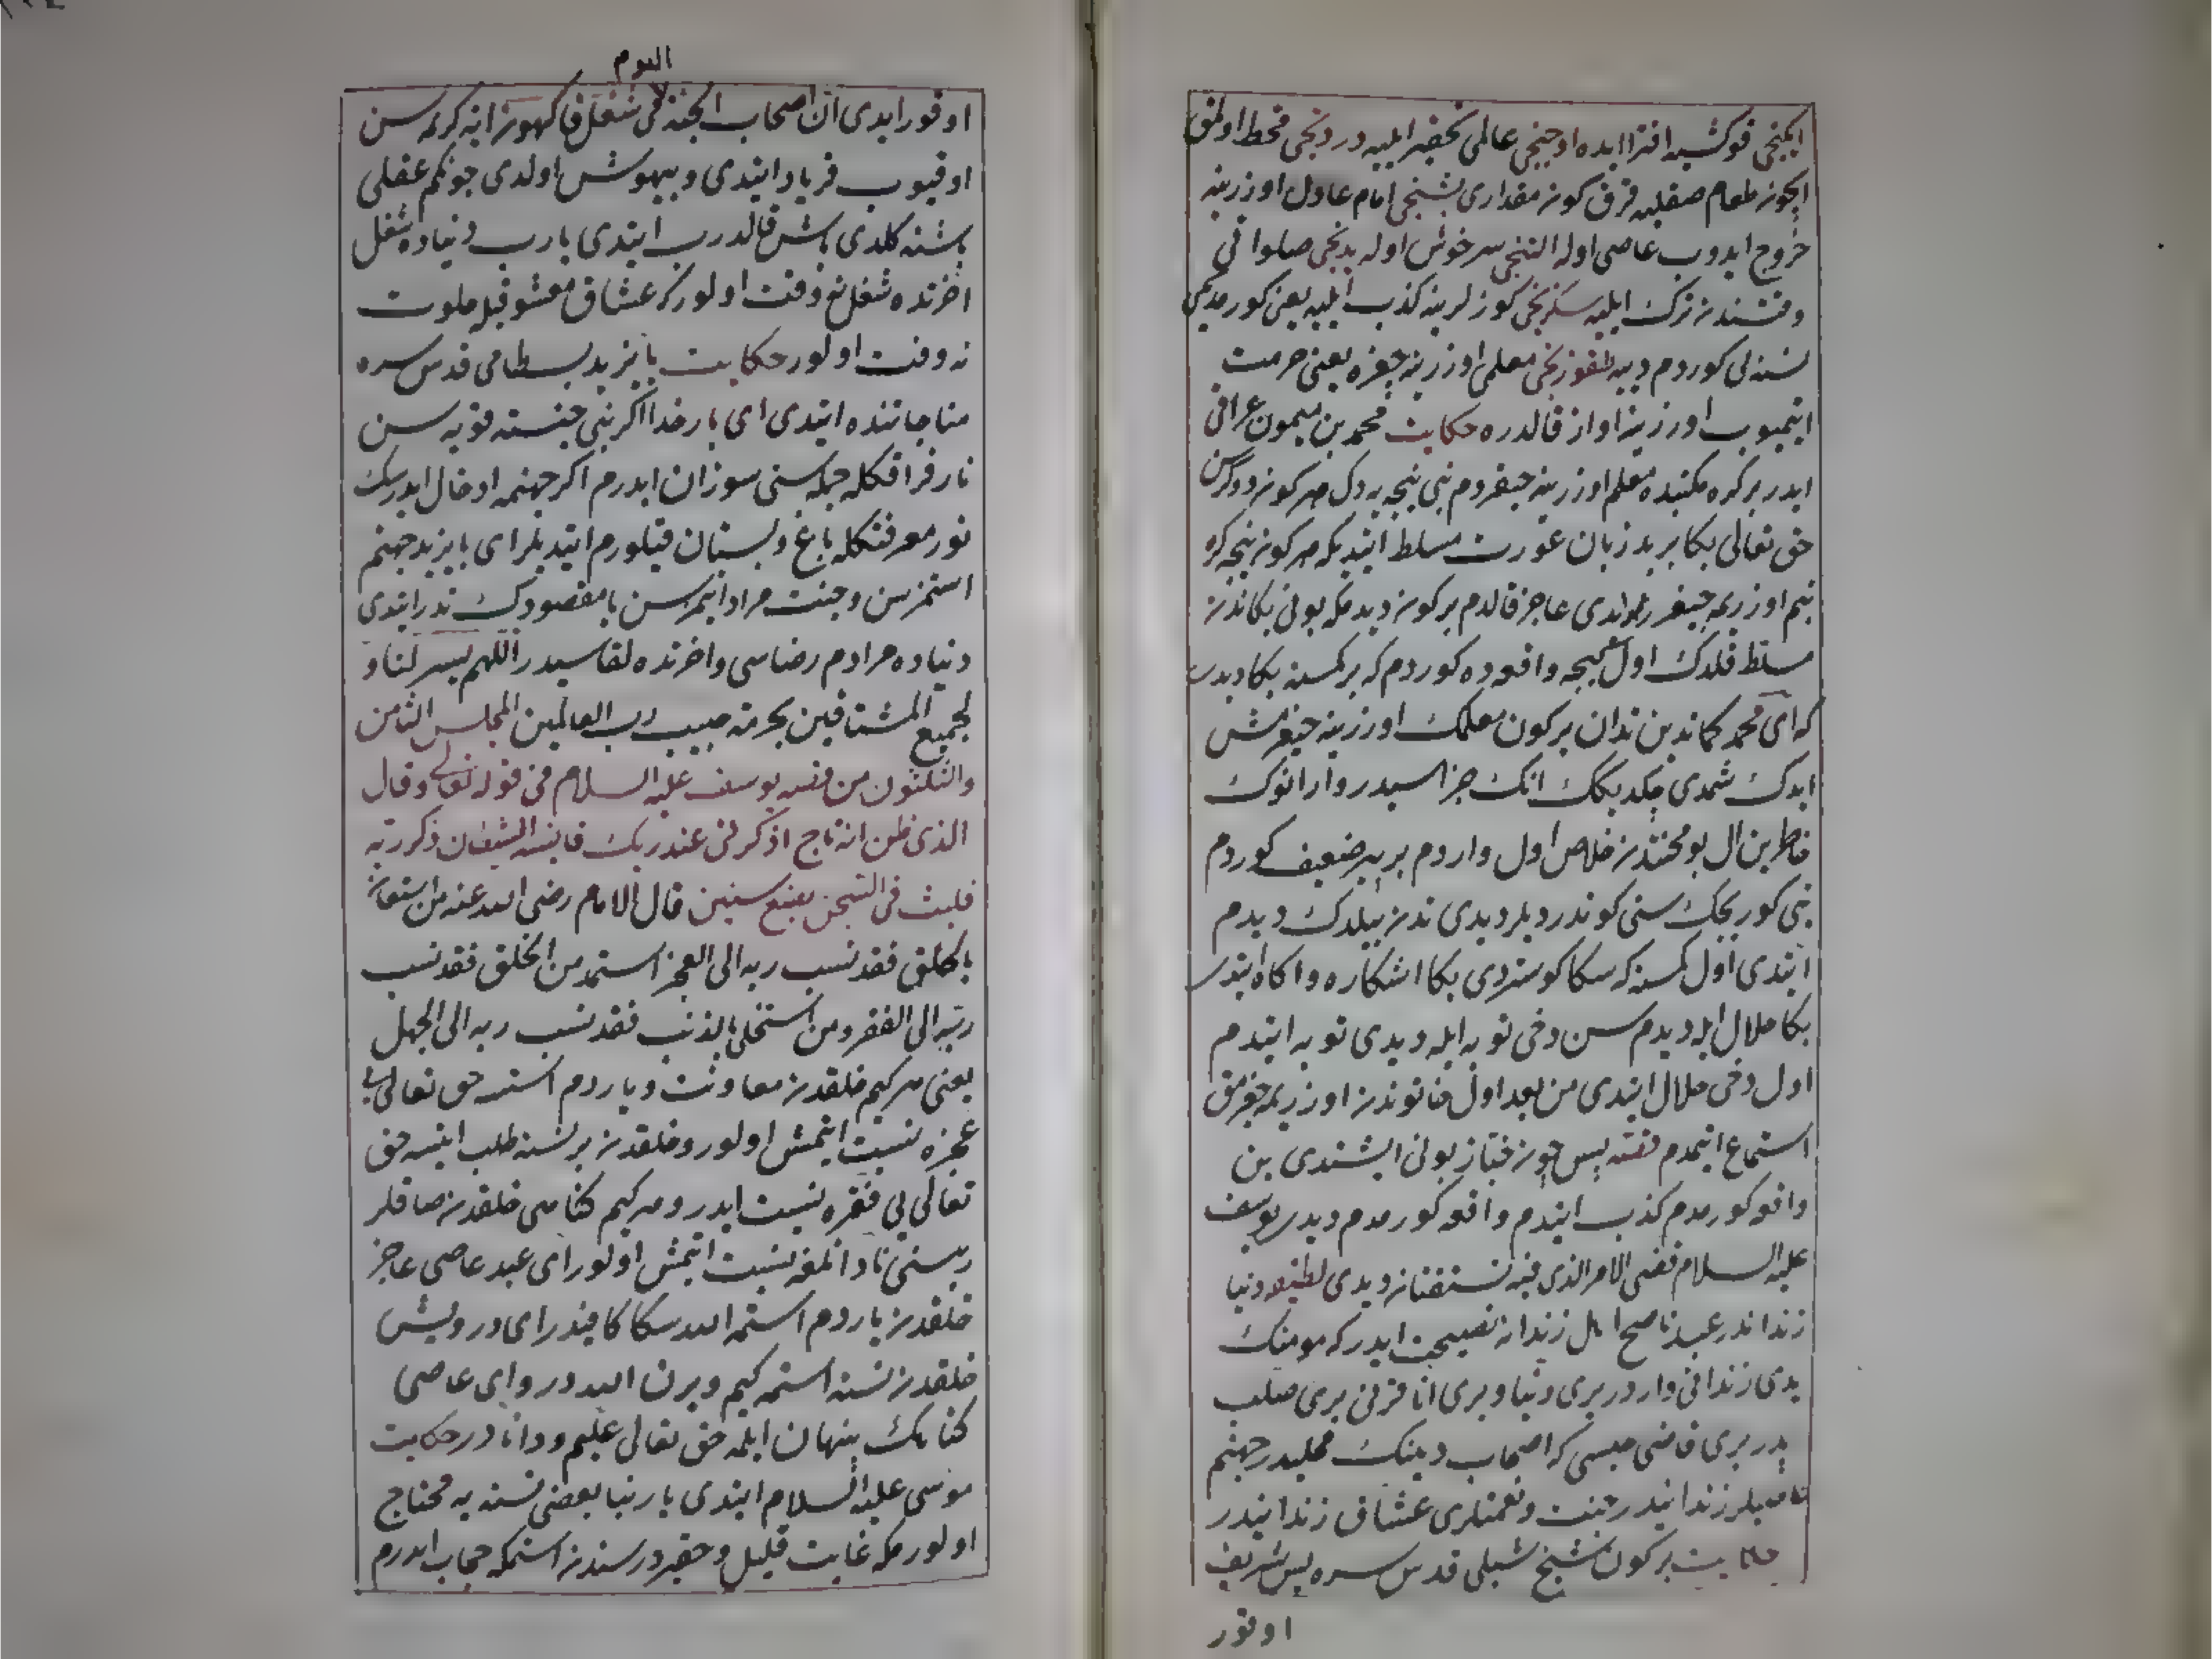 ایکنجی قوکشیه افترا ایده اوچنجی عالمی تحقیر ایلیه دردنجی قحط اولمق
ایچون طعام صقلیه قرق کون مقداری بشنجی امام عادل اوزرینه
خروج ایدوب عاصی اوله التنجی سرخوش اوله یدنجی صلواتی
وقتندن ترک ایلیه سکزنجی کوزلرینه کذب ایلیه یعنی کورمدیکی
نسنه لی کوردم دییه طقوزنجی معلمی اوزرینه چغره یعنی حرمت
ایتمیوب اورزینه اواز قالدره حکایت محمد بن میمون عراقی
ایدر بر کره مکتبده معلم اوزرینه چیغردم بنی نیجه یه دک هر کون دوکرسن
حق تعالی بکا بر بد زبان عورت مسلط ایتدیکه هر کون نیجه کره
بنم اوزریمه چیغرر اولدی عاجز قالدم بر کون دیدمکه بونی بکا ندن
مسلط قلدک اول کیجه واقعه ده کوردم که بر کسنه بکا دیدی
که ای محمد کماتدین تدان بر کون معلمک اوزرینه چیغرمش
ایدک شمدی چکدیکک انک جزاسیدر وار انوک
خاطرین ال بو محنتدن خلاص اول واردم بر پیر ضعیف کوردم
بنی کوریجک سنی کوندردیلر دیدی ندن بیلدک دیدم
ایتدی اول کسنه که سکا کوستردی بکا اشکاره و اکاه ایتدی
بکا حلال ایله دیدم سن دخی توبه ایله دیدی توبه ایتدم
اول دخی حلال ایتدی من بعد اول خاتوندن اوزریمه چغرمق
استماع ایتمدم قصه پس چون خباز بونی ایشتدی بن
واقعه کورمدم کذب ایتدم واقعه کورمدم دیدی یوسف
علیه السلام قضی الامر الذی فیه تستفتیان دیدی لطیفه دنیا
زنداندر عبد ناصح اهل زندانه نصیحت ایدر که مومنک
یدی زندانی واردر بری دنیا و بری انا قرنی بری صلب
پدر بری قاضی حبسی که اصحاب دینک محلیدر جهنم
عاصیلر زندانیدر جنت و نعمتلری عشاق زندانیدر
حکایت بر کون شیخ شبلی قدس سره یس شریف
اوقور
الیوم
اوقور ایدی ان اصحاب الجنة فی شغل فاکهون ایة کریمه سن
اوقیوب فریاد ایتدی و بیهوش اولدی چونکم عقلی
باشنه کلدی باش قالدرب ایتدی یارب دنیاده شغل
اخرتده شغل نه وقت اولور که عشاق معشوقیله خلوت
نه وقت اولور حکایت بایزید بسطامی قدس سره
مناجاتنده ایتدی ای بار خدا اکر بنی جنته قویه سن
نار فراقکله جمله سنی سوزان ایدرم اکر جهنمه ادخال ایدرسک
نور معرفتکله باغ و بستان قیلورم ایتدیلر ای بایزید جهنم
استمزسن و جنت مراد ایتمزسن یا مقصودک ندر ایتدی
دنیاده مرادم رضاسی و اخرتده لقاسیدر اللهم یسر لنا و
لجمیع المشتاقین بحرمة حبیب رب العالمین المجلس الثامن
والثلثون من قصه یوسف علیه السلام فی قوله تعالی وقال
الذی ظن انه ناج اذکرنی عند ربک فانسه الشیطان ذکر ربه
فلبث فی السجن بضع سنین قال الامام رضی الله عنه من استعان
بالخلق فقد نسب ربه الی العجز استمد من الخلق فقد نسب
ربه الی الفقر و من استخلی بالذنب فقد نسب ربه الی الجهل
یعنی هر کیم خلقدن معاونت و یاردم استسه حق تعالی یی
عجزه نسبت ایتمش اولور و خلقدن بر نسنه طلب ایتسه حق
تعالی یی فقره نسبت ایدر و هر کیم کناهی خلقدن صاقلر
ربسنی نادانلغه نسبت ایتمش اولور ای عبد عاصی عاجز
خلقدن یاردم استمه الله سکا کافیدر ای درویش
خلقدن نسنه استمه کیم ویرن اللهدر و ای عاصی
کناهک پنهان ایلمه حق تعالی علیم و دانادر حکایت
موسی علیه السلام ایتدی یا ربنا بعضی نسنه یه محتاج
اولورمکه غایت قلیل و حقیردر سندن استمکه حجاب ایدرم